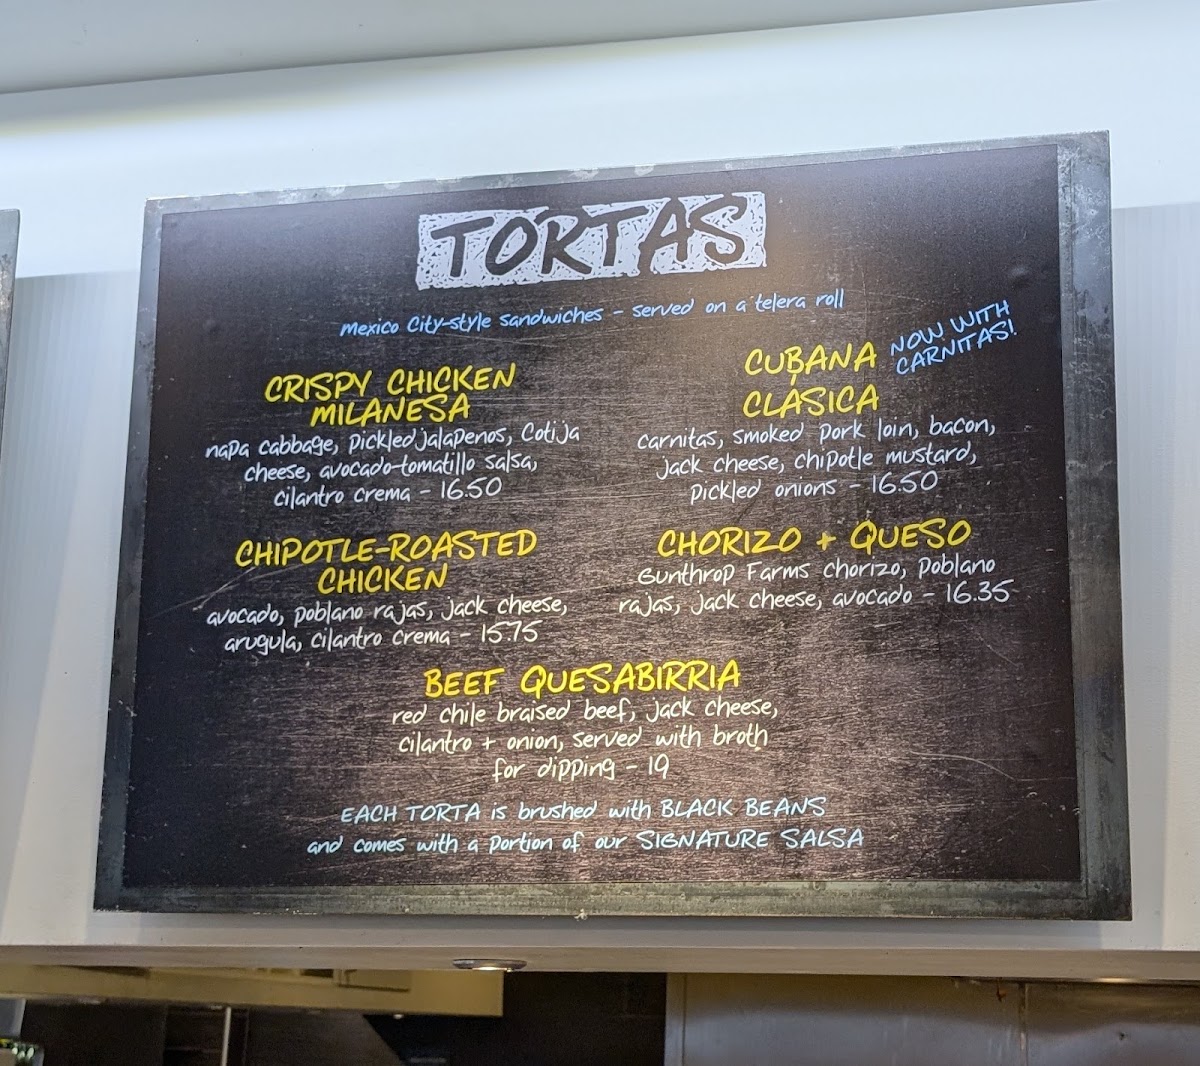 TORTAS
Mexico City-style sandwiches - served on a telera roll
CRISPY CHICKEN
MILANESA
napa cabbage, pickled jalapenos, Cotija
cheese, avocado-tomatillo salsa,
cilantro crema - 16.50
CHIPOTLE-ROASTED
CHICKEN
avocado, poblano rajas, jack cheese,
arugula, cilantro crema - 15.75
CUBANA
CLÁSICA
NOW WITH
CARNITAS!
carnitas, smoked pork loin, bacon,
jack cheese, chipotle mustard,
pickled onions - 16.50
CHORIZO + QUESO
Gunthrop Farms chorizo, poblano
rajas, jack cheese, avocado - 16.35
BEEF QUESABIRRIA
red chile braised beef, jack cheese,
cilantro + onion, served with broth
for dipping - 19
EACH TORTA is brushed with BLACK BEANS
and comes with a portion of our SIGNATURE SALSA